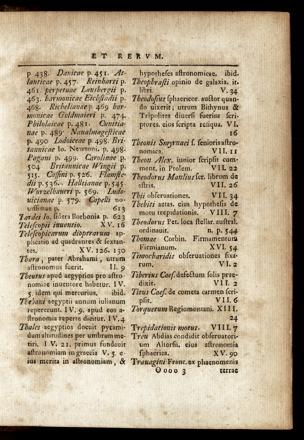 ET RERVM.
p 438. Danicae p. 451. At-
lanticae p. 457. Reinharti p.
461. perpetuae Lansbergii p.
463. harmonicae Eichstadii p.
468. Richelianae p. 469 har-
monicae Goldmaieri p. 474.
Philolaicae p. 481.
nae p. 489. Nanalmagesticae
p. 490 Lodoiceae p. 498. Bri-
tannicae Io. Neutoni. p. 498.
Pagani p. 499. Carolinae p.
504 Britannicae Wingii p.
515. Cassini p. 526. Flamste-
dii p. 536. Halleianae p. 545.
Wurzelbaueri p. 569. Ludo-
vicianae p. 579. Capelli no-
vissimae p. 613
Tardes Io. sidera Borbonia p. 623
Telescopii inuentio. XV. 16
Telescopiorum dioptrarum ap-
plicatio ad quadrantes & sextan-
tes. XV. 126. 130
Thara, pater Abrahami, utrum
astronomus fuerit. II. 9
Theutus apud aegyptios pro astro-
nomiae inuentore habetur. IV.
5. idem qui mercurius. ibid.
aegyptii annum iulianum
repererunt. IV. 9. apud eos a-
stronomia reperte dicitur. IV. 4
Thales aegyptios docuit pyrami-
dum altitudines per umbram me-
tiri. IV. 21. primus fundauit
astronomiam in graecia V. 5. e-
ius merita in astronomiam, &
hypotheses astronomicae. ibid.
Theophrasti opinio de galaxia. it.
libri. V. 34
Theodosius sphaericor. auctor quan-
do vixerit; utrum Bithynus &
Tripolites diuersi fuerint scri-
ptores. eius scripta reliqua. VI.
16
Theonis Smyrnaei s. senioris astro-
nomica. VII. 11
Theon Alex. iunior scripsit com-
ment, in Ptolem. VII. 22
Theodorus Manlius scr. librum de
astris. VII. 26
Thii obseruationes. VII. 34
Thebitii aetas. eius hypothesis de
motu trepidationis. VIII. 7
Theodorus Pet. loca stellar. austral.
ordinauit. n. p. 544
Thomae Corbin. Firmamentum
Firmianum. XVI. 54
Timocharidis obseruationes fixa-
rum. VI. 2
Tiberius Caes. defectum solis prae-
dixit. VII. 2
Titus Caes. de cometa carmen scri-
psit. VII. 6
Torquetum Regiomontani. XIII.
24
Trepidationis motus. VIII. 7
Treu Abdias condidit obseruatori-
um Altorfii. eius astronomia
sphaerica. XV. 90
Trauagini Franc. ex phaenomenis
Oooo 3 terrae